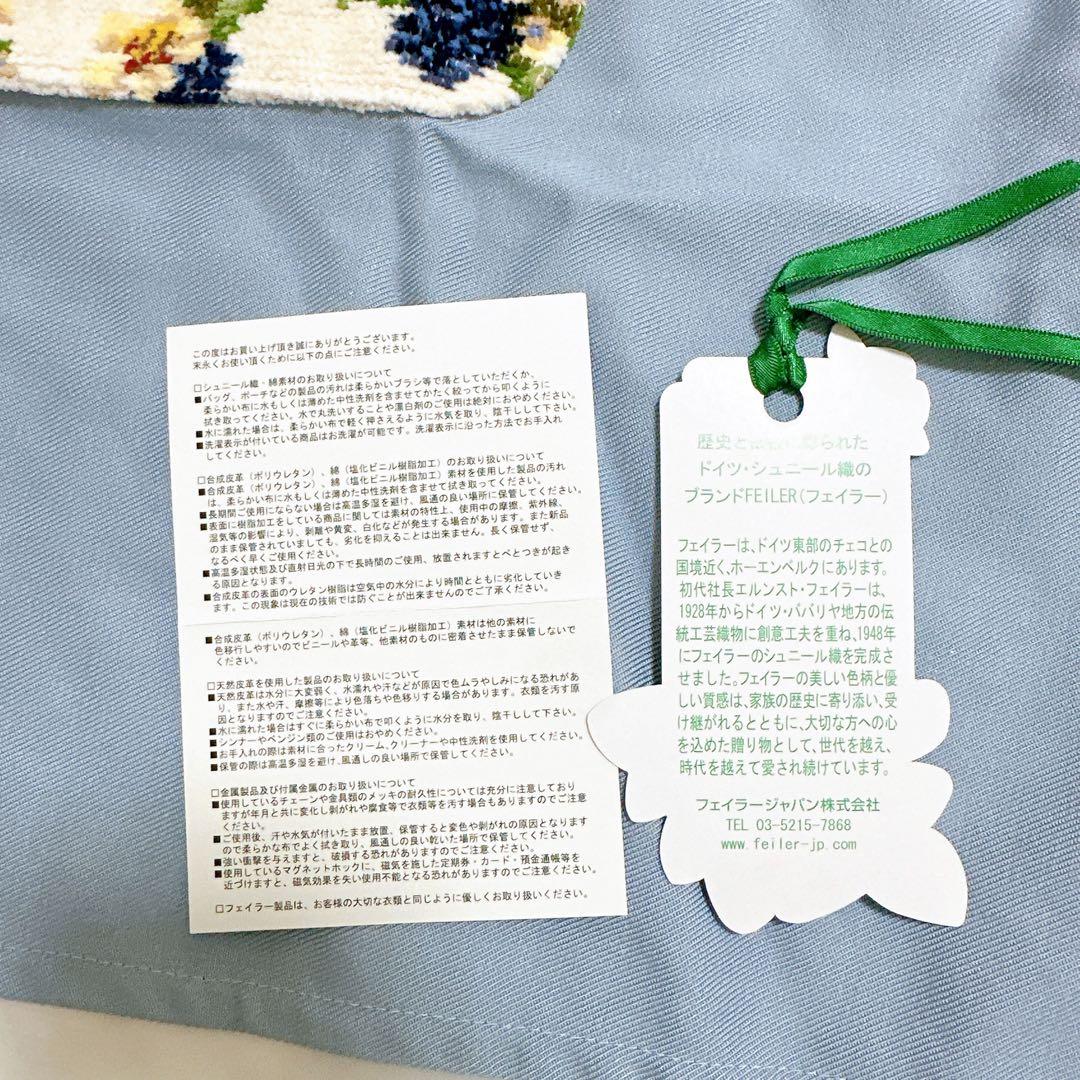 この度はお買い上げ頂き誠にありがとうございます。
末永くお使い頂くために以下の点にご注意ください。
□シュニール織・綿素材のお取り扱いについて
■バッグ、ポーチなどの製品の汚れは柔らかいブラシ等で落としていただくか、
柔らかい布に水もしくは薄めた中性洗剤を含ませてかたく絞ってから叩くように
拭き取ってください。水で丸洗いすることや漂白剤のご使用は絶対におやめください。
■水に濡れた場合は、柔らかい布で軽く押さえるように水気を取り、陰干しして下さい。
■洗濯表示が付いている商品はお洗濯が可能です。洗濯表示に沿った方法でお手入れ
してください。
□合成皮革（ポリウレタン）、綿（塩化ビニル樹脂加工）のお取り扱いについて
■合成皮革（ポリウレタン）、綿（塩化ビニル樹脂加工）素材を使用した製品の汚れ
は、柔らかい布に水もしくは薄めた中性洗剤を含ませて拭き取ってください。
■長期間ご使用にならない場合は高温多湿を避け、風通の良い場所に保管してください。
■表面に樹脂加工をしている商品に関しては素材の特性上、使用中の摩擦、紫外線、
湿気等の影響により、剥離や黄変、白化などが発生する場合があります。また新品
のまま保管されていましても、劣化を抑えることは出来ません。長く保管せず、
なるべく早くご使用ください。
■高温多湿状態及び直射日光の下で長時間のご使用、放置されますとべとつきが起き
る原因となります。
■合成皮革の表面のウレタン樹脂は空気中の水分により時間とともに劣化していき
ます。この現象は現在の技術では防ぐことが出来ませんのでご了承ください。
■合成皮革（ポリウレタン）、綿（塩化ビニル樹脂加工）素材は他の素材に
色移行しやすいのでビニールや革等、他素材のものに密着させたまま保管しないで
ください。
□天然皮革を使用した製品のお取り扱いについて
■天然皮革は水分に大変弱く、水濡れや汗などが原因で色ムラやしみになる恐れがあ
り、また水や汗、摩擦等により色落ちや色移りする場合があります。衣類を汚す原
因となりますのでご注意ください。
■水に濡れた場合はすぐに柔らかい布で叩くように水分を取り、陰干しして下さい。
■シンナーやベンジン類のご使用はおやめください。
■お手入れの際は素材に合ったクリーム、クリーナーや中性洗剤を使用してください。
■保管の際は高温多湿を避け、風通しの良い場所で保管してください。
□金属製品及び付属金属のお取り扱いについて
■使用しているチェーンや金具類のメッキの耐久性については充分に注意しており
ますが年月と共に変化し剥がれや腐食等で衣類等を汚す場合もありますのでご注意
ください。
■ご使用後、汗や水気が付いたまま放置、保管すると変色や剥がれの原因となります
ので柔らかな布でよく拭き取り、風通しの良い乾いた場所で保管してください。
■強い衝撃を与えますと、破損する恐れがありますのでご注意ください。
■使用しているマグネットホックに、磁気を施した定期券・カード・預金通帳等を
近づけますと、磁気効果を失い使用不能となる恐れがありますのでご注意ください。
□フェイラー製品は、お客様の大切な衣類と同じように優しくお取り扱いください。
歴史と
られた
ドイツ・シュニール織の
ブランドFEILER(フェイラー)
フェイラーは、ドイツ東部のチェコとの
国境近く、ホーエンベルクにあります。
初代社長エルンスト・フェイラーは、
1928年からドイツ・ババリヤ地方の伝
統工芸織物に創意工夫を重ね、1948年
にフェイラーのシュニール織を完成さ
せました。フェイラーの美しい色柄と優
しい質感は、家族の歴史に寄り添い、受
け継がれるとともに、大切な方への心
を込めた贈り物として、世代を越え、
時代を越えて愛され続けています。
フェイラージャパン株式会社
TEL 03-5215-7868
www.feiler-jp.com